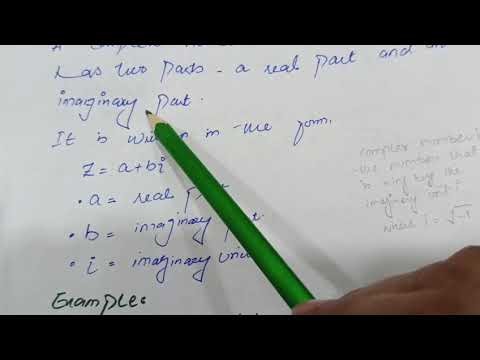 A complex
has two parts - a real part and an
imaginary part.
It is written in the form.
Z = a+bi
• a = real part
• b = imaginary part.
• i = imaginary unit
Example:
complex number is
the number that
is by the
imaginary unit i
where i = √-1